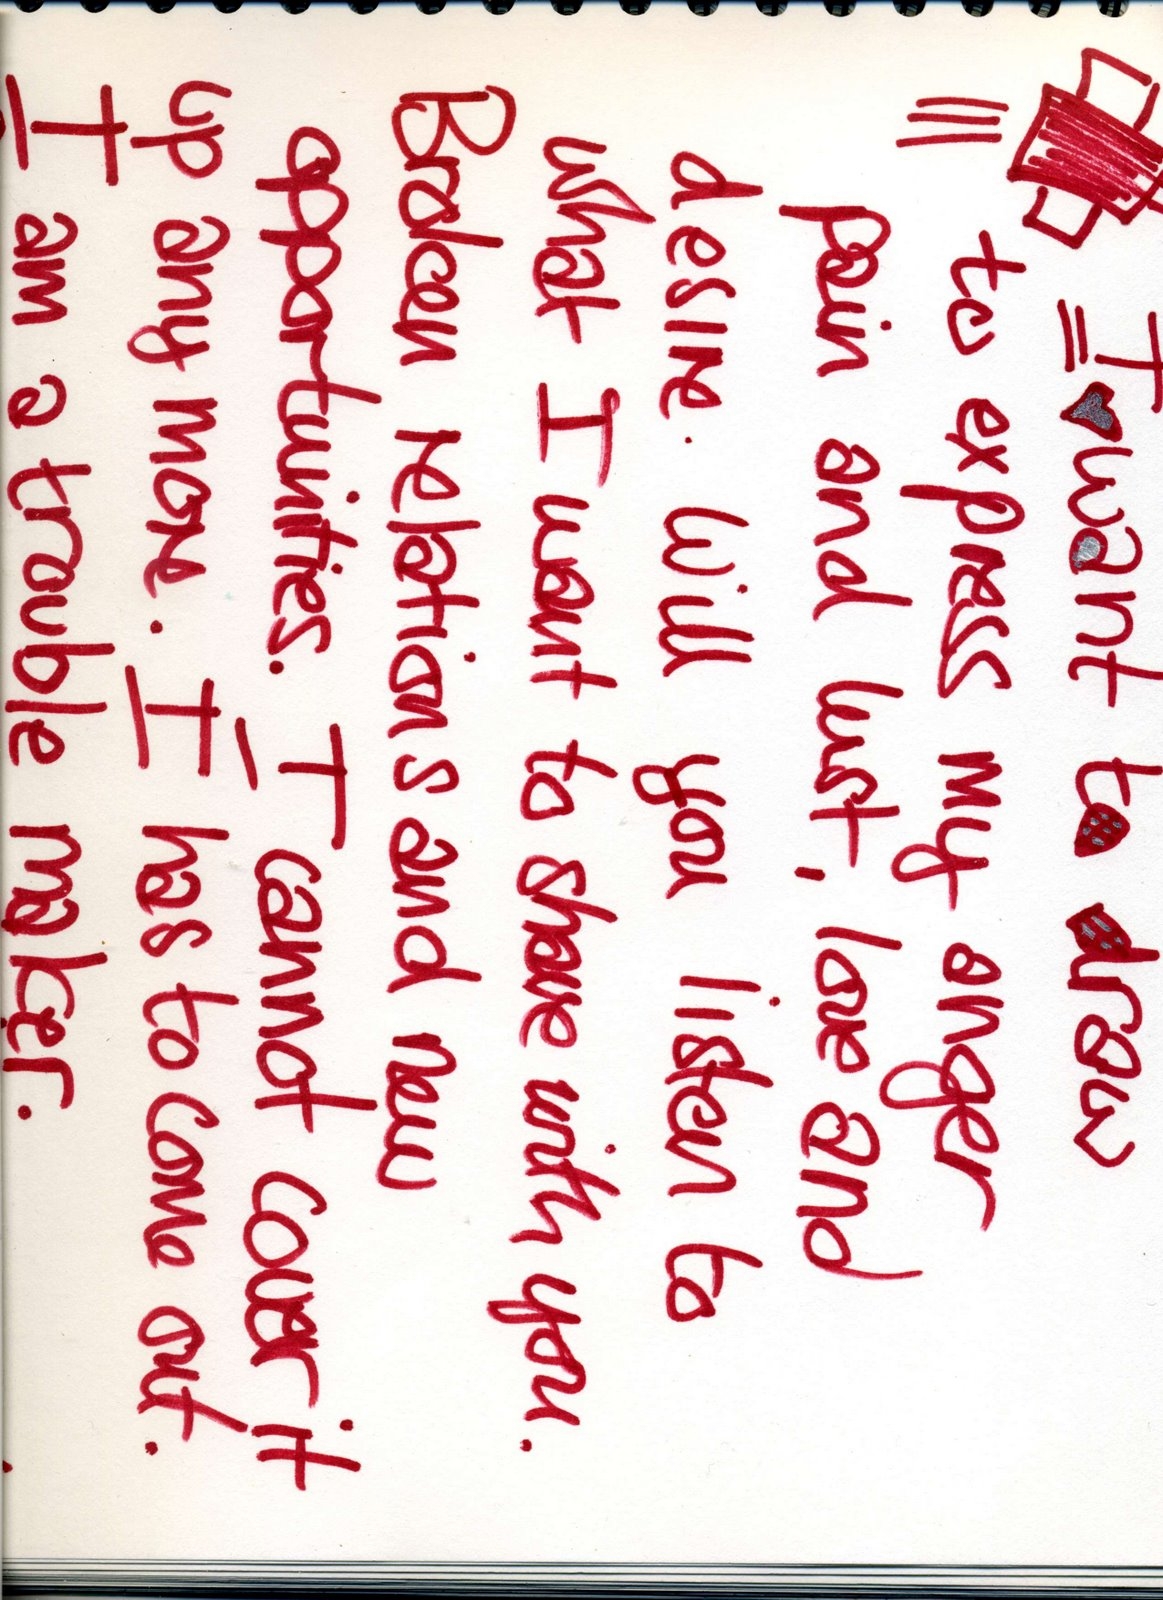 I want to draw
to express my anger
pain and lust, love and
desire. Will you listen to
what I want to share with you.
Broken relations and new
opportunities. I cannot cover it
up any more. I has to come out.
I am a trouble maker.